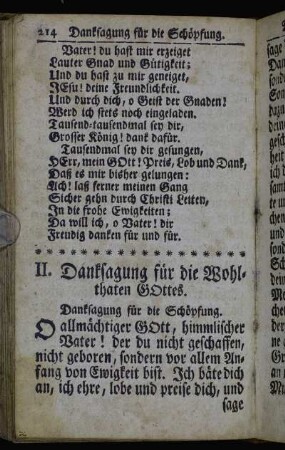 214 Danksagung für die Schöpfung.
Vater! du hast mir erzeiget
Lauter Gnad und Gütigkeit;
Und du hast zu mir geneiget,
JEsu! deine Freundlichkeit.
Und durch dich, o Geist der Gnaden!
Werd ich stets noch eingeladen.
Tausend-tausendmal sey dir,
Grosser König! dank dafür.
Tausendmal sey dir gesungen,
HErr, mein GOtt! Preis, Lob und Dank,
Daß es mir bisher gelungen:
Ach! laß ferner meinen Gang
Sicher gehn durch Christi Leiten,
In die frohe Ewigkeiten;
Da will ich, o Vater! dir
Freudig danken für und für.
II. Danksagung für die Wohl-
thaten GOttes.
Danksagung für die Schöpfung.
O allmächtiger GOtt, himmlischer
Vater! der du nicht geschaffen,
nicht geboren, sondern vor allem An-
fang von Ewigkeit bist. Ich bäte dich
an, ich ehre, lobe und preise dich, und
sage